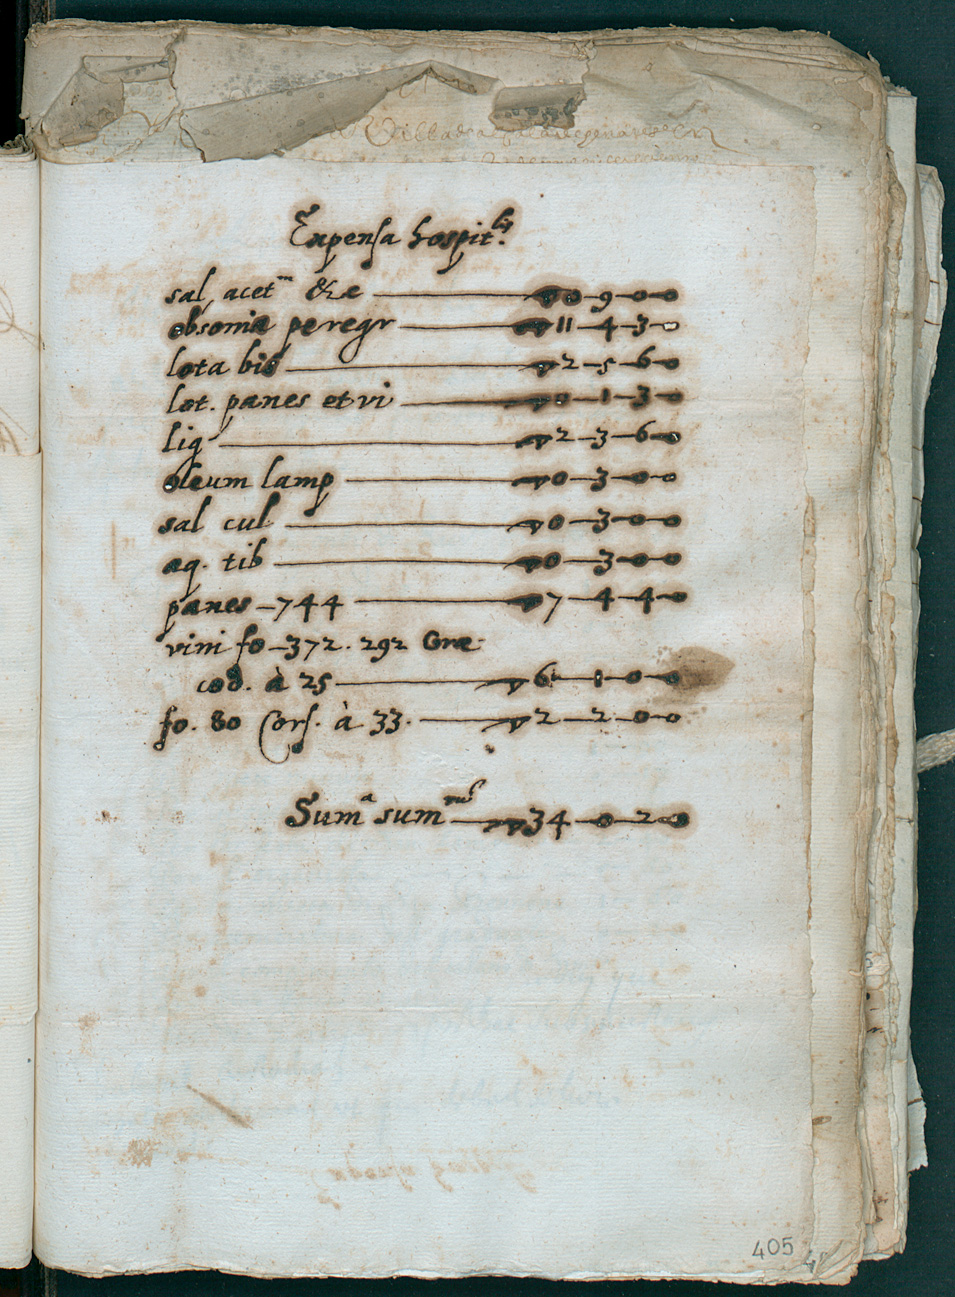 Expensa hospit.lis
sal, acet.m &c — 0 — 9 — 0 — 0
obsonia peregr — 11 — 4 — 3 — 0
lota bis — 2 — 5 — 6 — 0
lot. panes et vi — 0 — 1 — 3 — 0
lig — 2 — 3 — 6 — 0
oleum lamp — 0 — 3 — 0 — 0
sal cul — 0 — 3 — 0 — 0
aq. tib — 0 — 3 — 0 — 0
panes — 744 — 7 — 4 — 4 — 0
vini fo — 372. 292 Græ
cod. à 25 — 6 — 1 — 0 — 0
fo. 80 Cors. à 33. — 2 — 2 — 0 — 0
Sum.a sum — 34 — 0 — 2 — 0
405